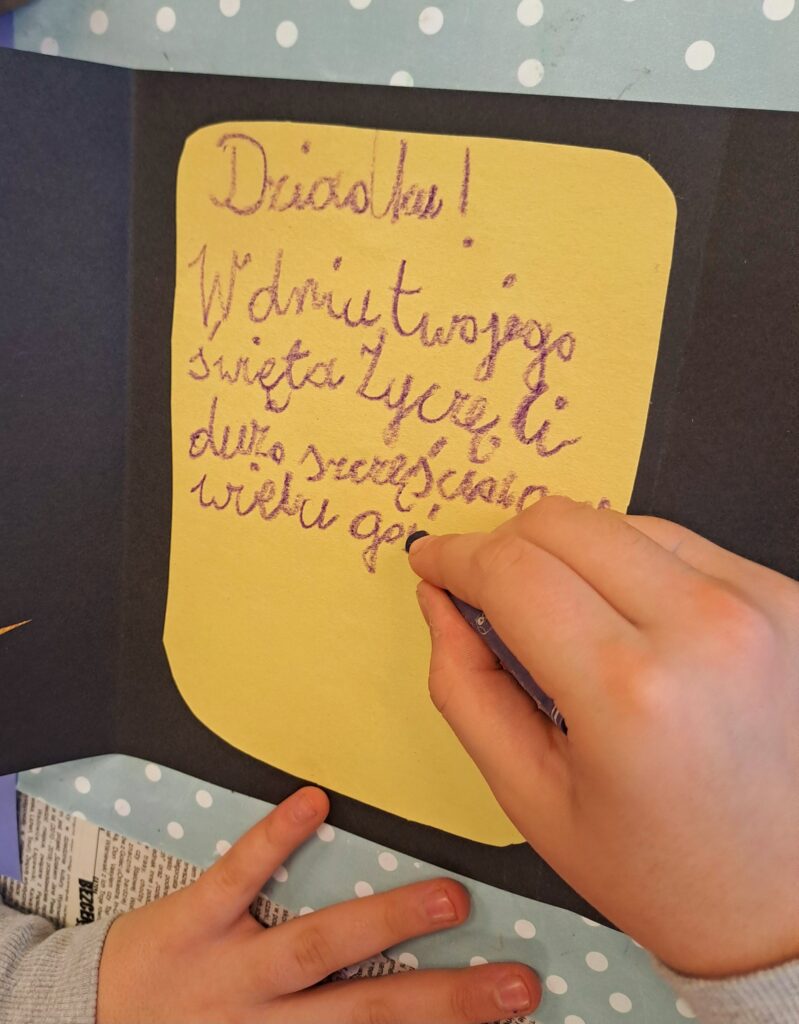 Dziadku!
W dniu twojego
święta życzę Ci
dużo szczęścia
wielu